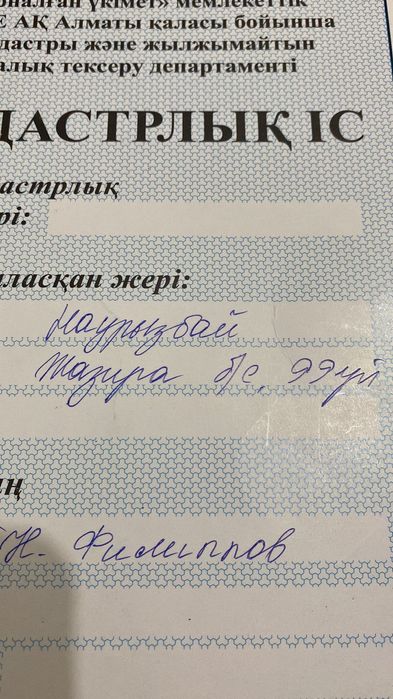 оналған үкімет» мемлекеттік
Е АҚ Алматы қаласы бойынша
дастры және жылжымайтын
алық тексеру департаменті
ДАСТРЛЫҚ ІС
астрлық
рі:
аласқан жері:
Наурызбай
Жазира б/с, 99 үй
ың
Н. Филиппов